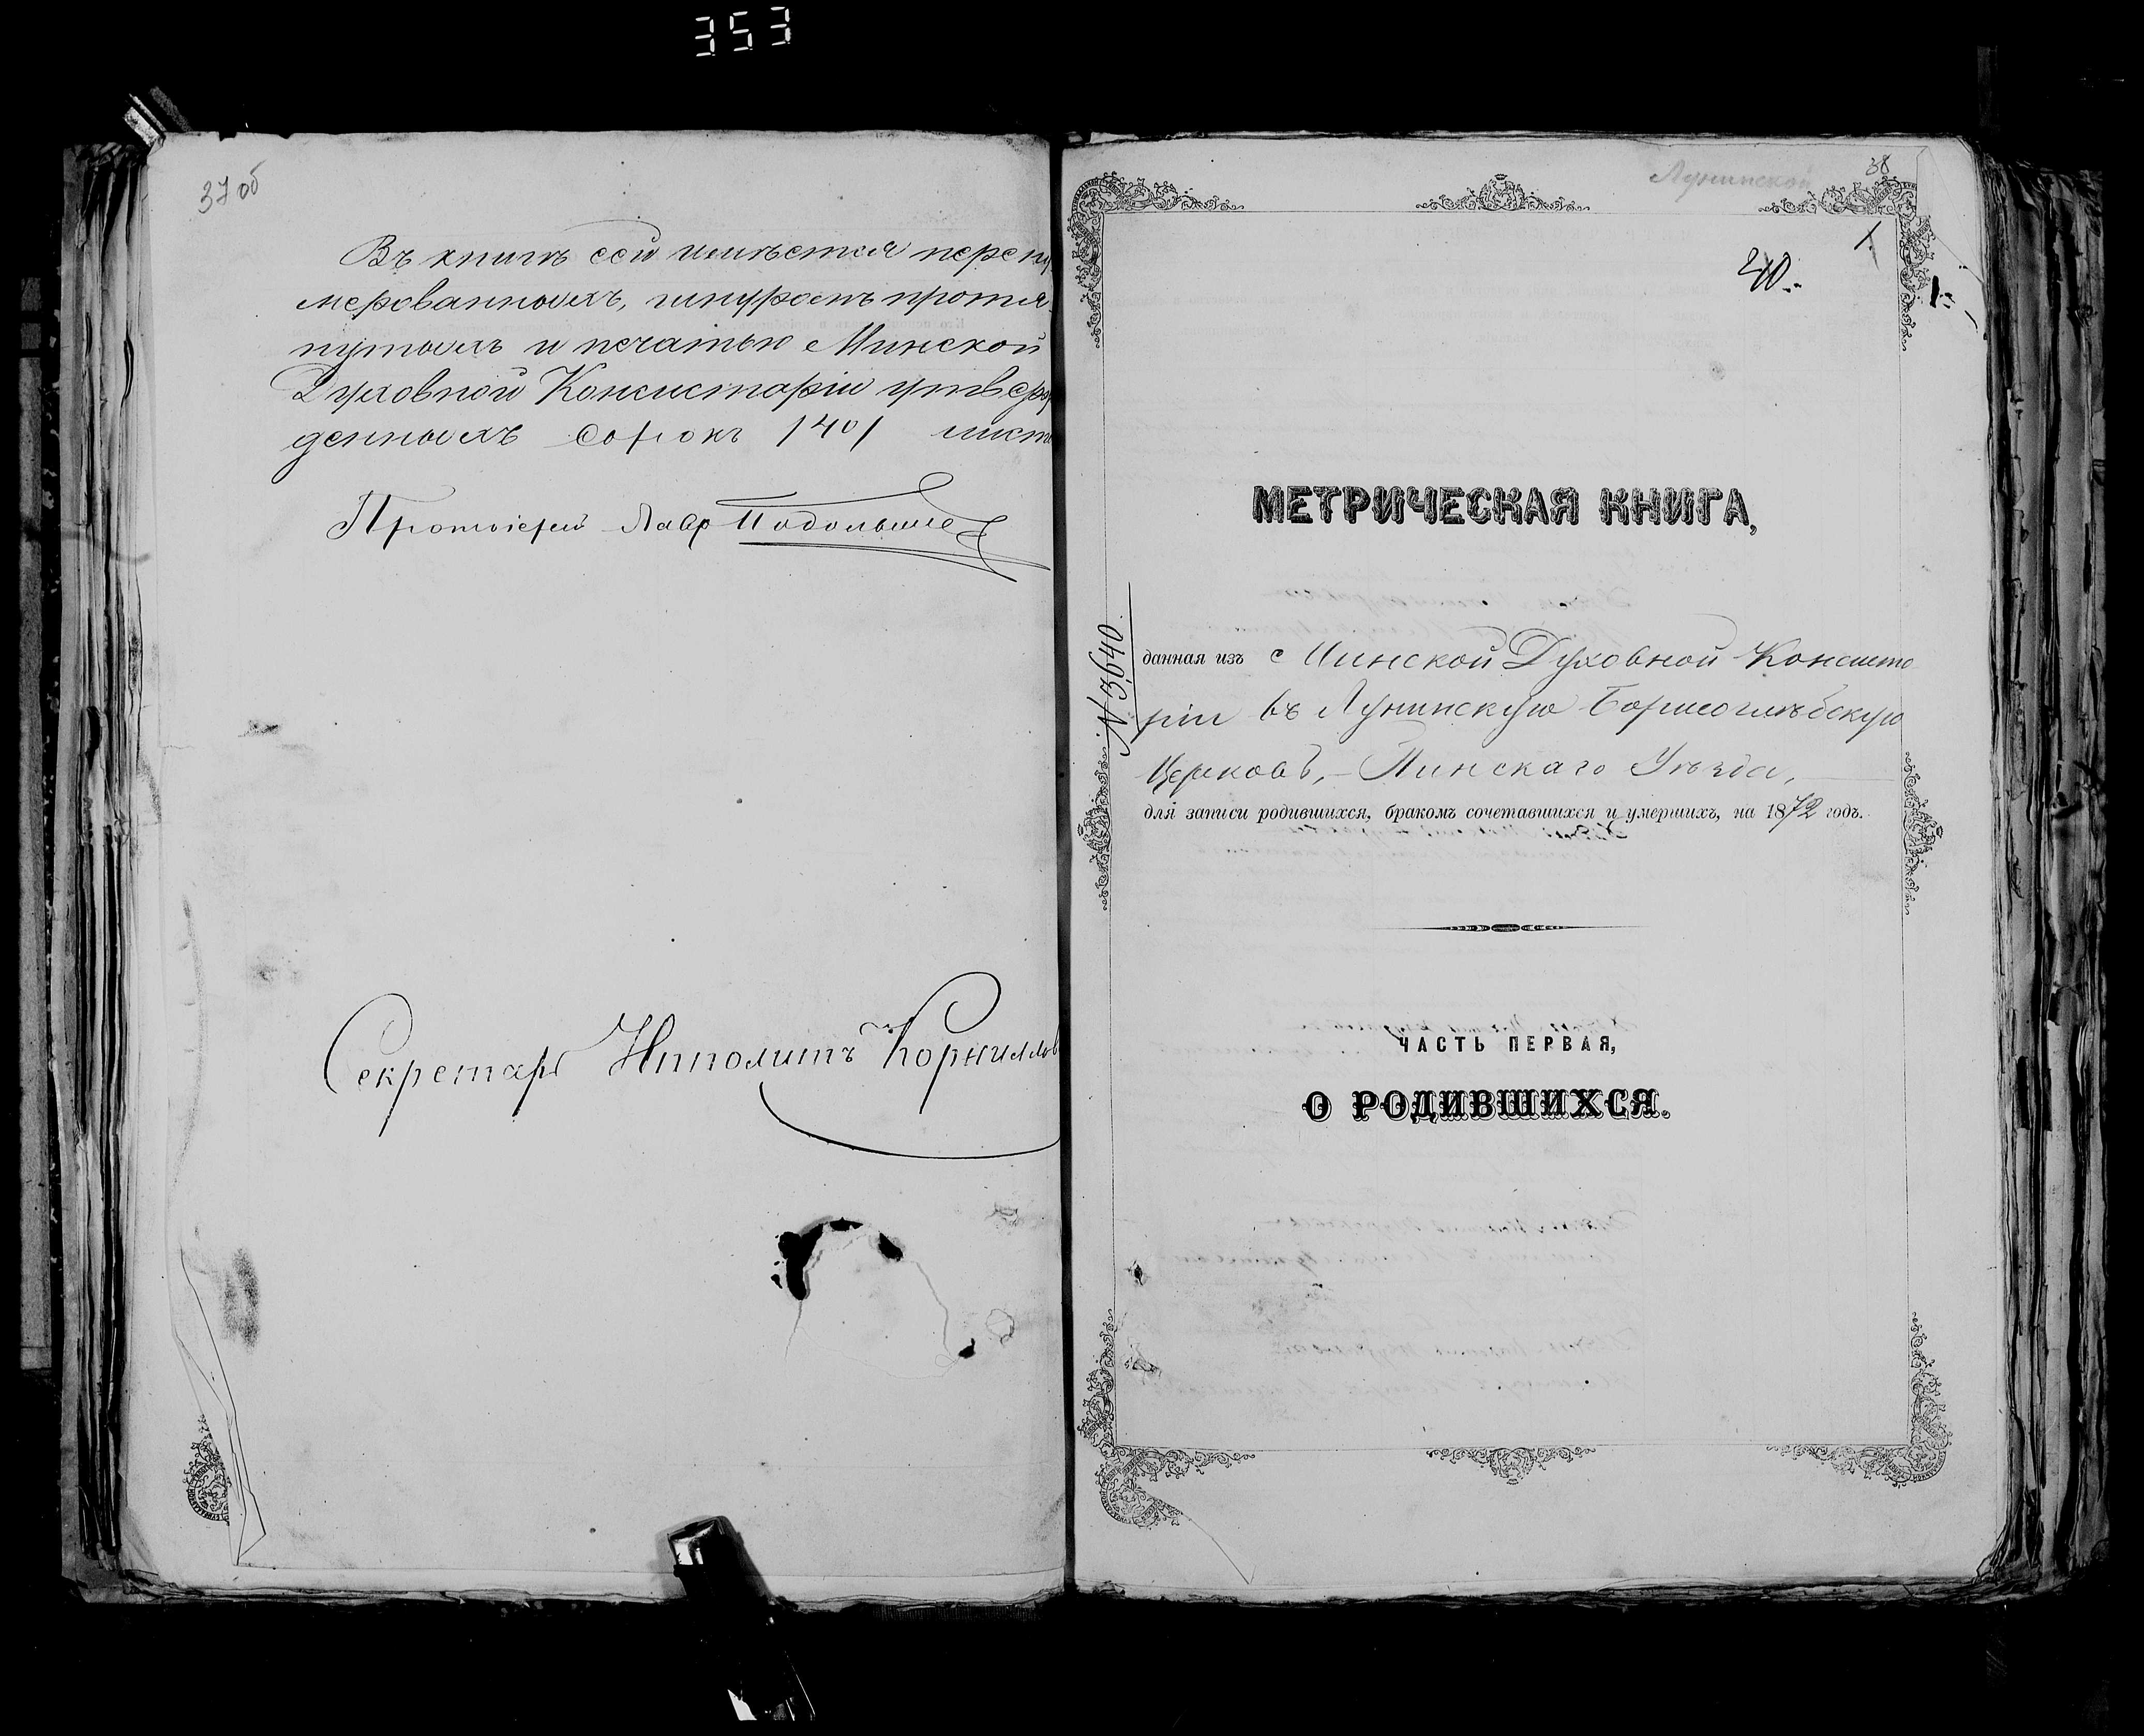 353
37 об
Въ книгѣ сей имѣется перену
мерованныхъ, шнуромъ протя
нутыхъ и печатью Минской
Духовной Консисторіи утверж
денныхъ сорокъ /40/ лист
Протоіерей Лавр
Секретарь Ипполитъ Корниллов
Лунинской
38
1
40.
1.
МЕТРИЧЕСКАЯ КНИГА,
№ 3,640.
данная изъ Минской Духовной Консисто
ріи въ Лунинскую Борисоглѣбскую
Церковь, – Пинскаго Уѣзда,
для записи родившихся, бракомъ сочетавшихся и умершихъ, на 1872 годъ.
ЧАСТЬ ПЕРВАЯ,
О РОДИВШИХСЯ.